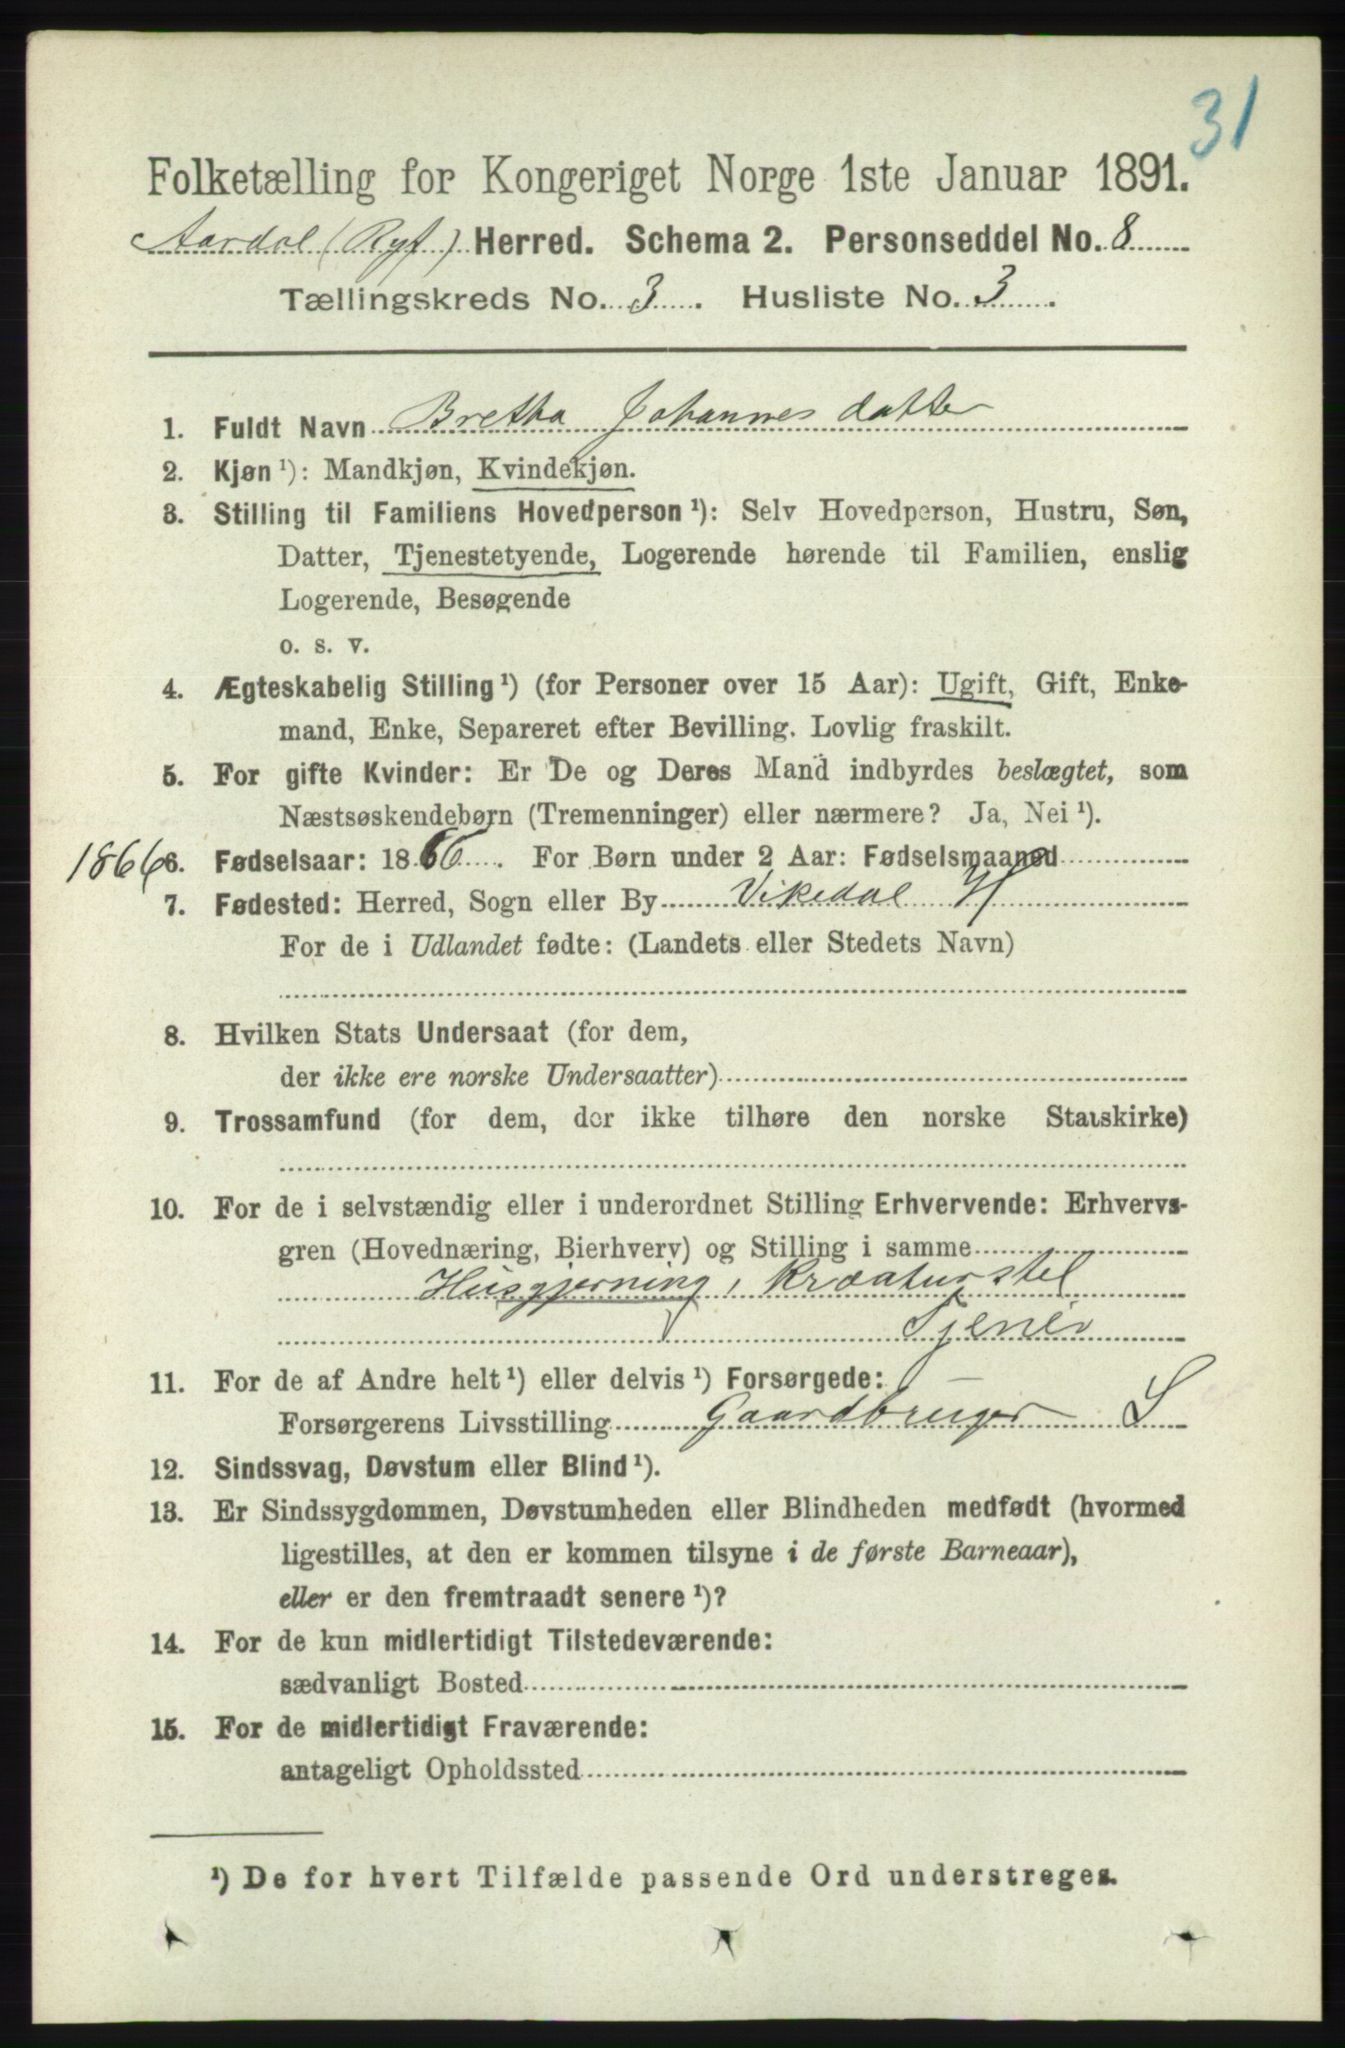 31
Folketælling for Kongeriget Norge 1ste Januar 1891.
Aardal (Ryf) Herred. Schema 2. Personseddel No. 8
Tællingskreds No. 3. Husliste No. 3.
1. Fuldt Navn Bretha Johannesdatter
2. Kjøn ¹): Mandkjøn, Kvindekjøn.
3. Stilling til Familiens Hovedperson ¹): Selv Hovedperson, Hustru, Søn,
Datter, Tjenestetyende, Logerende hørende til Familien, enslig
Logerende, Besøgende
o. s. v.
4. Ægteskabelig Stilling ¹) (for Personer over 15 Aar): Ugift, Gift, Enke-
mand, Enke, Separeret efter Bevilling. Lovlig fraskilt.
5. For gifte Kvinder: Er De og Deres Mand indbyrdes beslægtet, som
Næstsøskendebørn (Tremenninger) eller nærmere? Ja, Nei ¹).
1866 6. Fødselsaar: 1866. For Børn under 2 Aar: Fødselsmaaned
7. Fødested: Herred, Sogn eller By Vikedal H
For de i Udlandet fødte: (Landets eller Stedets Navn)
8. Hvilken Stats Undersaat (for dem,
der ikke ere norske Undersaatter)
9. Trossamfund (for dem, der ikke tilhøre den norske Statskirke)
10. For de i selvstændig eller i underordnet Stilling Erhvervende: Erhvervs-
gren (Hovednæring, Bierhverv) og Stilling i samme
Husgjerning, Kreaturstel
Tjener
11. For de af Andre helt ¹) eller delvis ¹) Forsørgede:
Forsørgerens Livsstilling Gaardbruger S
12. Sindssvag, Døvstum eller Blind ¹).
13. Er Sindssygdommen, Døvstumheden eller Blindheden medfødt (hvormed
ligestilles, at den er kommen tilsyne i de første Barneaar),
eller er den fremtraadt senere ¹)?
14. For de kun midlertidigt Tilstedeværende:
sædvanligt Bosted
15. For de midlertidigt Fraværende:
antageligt Opholdssted
¹) De for hvert Tilfælde passende Ord understreges.